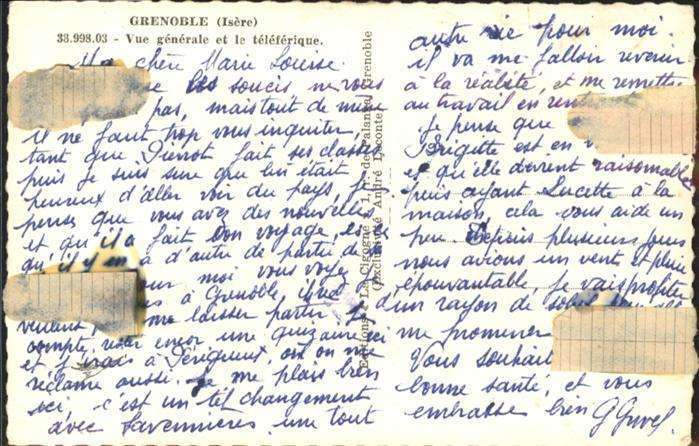 GRENOBLE (Isère)
38.998.03 - Vue générale et le téléférique.
Ma chère Marie Louise
les soucis ne vous
pas, mais tout de même
il ne faut trop vous inquiter
tant que Pierrot fait ses classes
puis je suis sure que lui était
heureux d'aller voir du pays, je
pense que vous avez des nouvelles
et qu'il a fait bon voyage,
qu'il y en a d'autre de partie
moi vous voyez
à Grenoble
veulent me laisser partir, je
compte, rester encor une quinzaine ici
et j'irais à Périgueux, où on me
réclame aussi. Je me plais bien
ici, c'est un tel changement
avec Savennières une tout
Editions "La Cigogne"
(exclusivité André Leconte)
Grenoble
autre vie pour moi.
il va me falloir revenir
à la réalité, et me remettre
au travail en
Je pense que
Brigitte est en
et qu'elle devient raisonnable
puis ayant Lucette à la
maison, cela vous aide un
peu. Depuis plusieurs jours
nous avions un vent et pluie
épouvantable, je vais profiter
d'un rayon de soleil
me promener
Vous souhait
bonne santé, et vous
embrasse bien